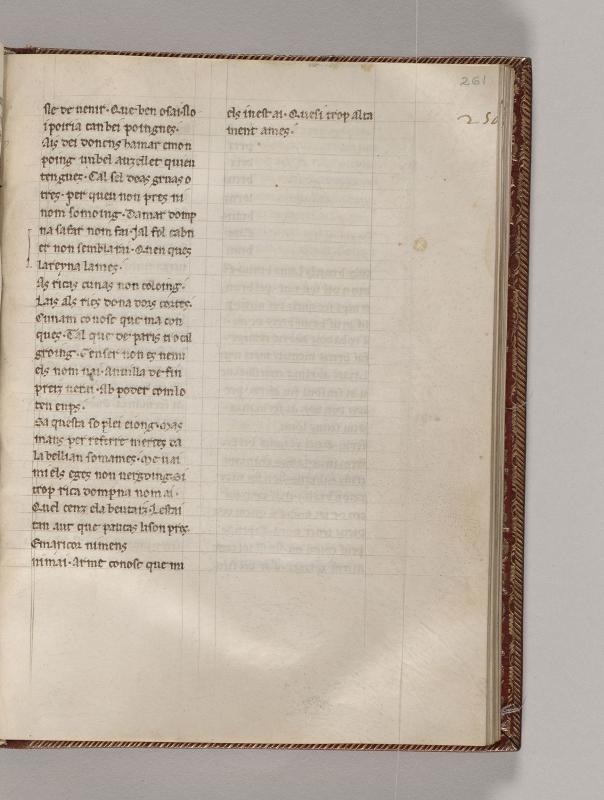 261
250
sle de uenir. Que ben osai. slo
i poiria tan bei poingnes.
Ais dei donens hamar emon
poing un bel auzellet quieu
tengues. Cal sel doas gruas o
tres. per queu non pres ni
nom somoing. Damar domp
na safar nom fai. Jal fol cabri
er non semblarai. Quen ques
la reyna laines.
As ricas cunas non coloing.
Lais als rics dona dois cortes.
Eu nam conosc que ma con
ques. Tal que de paris tro cil
groing. Genser non es nem
els nom uai. An uilla de fin
pretz uerai. Ab poder com lo
ten enps.
Sa questa so plei eiong. Mas
mans per referre merces ca
la bellian somames. Me uai
miels eges non uergoing. Si
trop rica dompna nom ai.
Quel cenz ela beutaiz. Lestai
tan aut que pautas lison pres.
Emaricor nimens
ni mai. Ar me conosc que mi
els in estai. Quesi trop alta
ment ames.